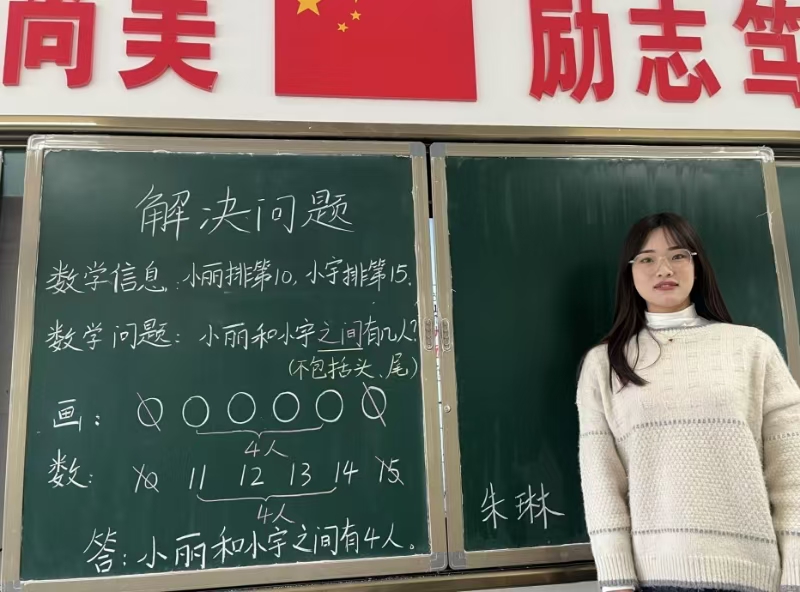 尚美
励志 笃
解决问题
数学信息:小丽排第10,小宇排第15.
数学问题:小丽和小宇之间有几人?
(不包括头、尾)
画:
4人
数: 10 11 12 13 14 15
4人
答:小丽和小宇之间有4人。
朱琳